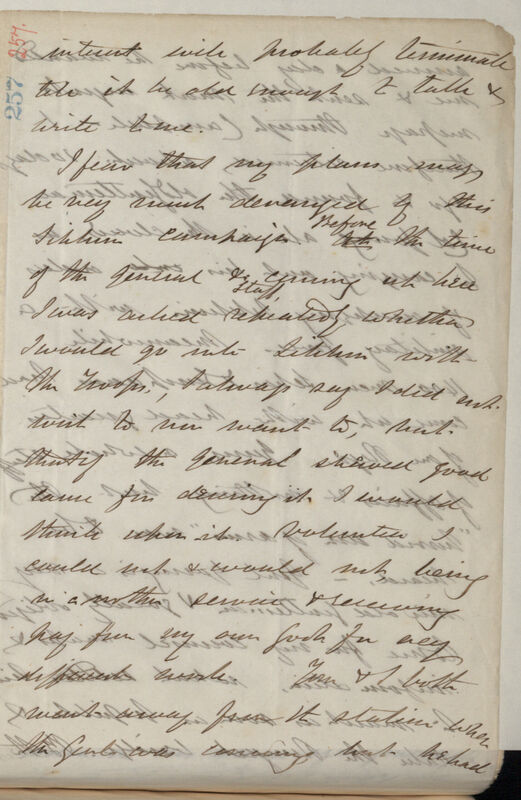 257.
257
interest will probably terminate
till it be old enough to talk &
write to me.
I fear that my plans may
be very much deranged by this
Sikkim campaign Before the time
of the general & Staff coming up here
I was asked repeatedly whether
I would go into Sikkim with
the troops, I always say I did not
wish to nor want to, but
that if the general shewed good
cause for desiring it I would
think upon it volunteer I
could not & would not, being
in another service & receiving
pay from my own Govt for very
different work. Tom & I both
went away from the station when
the Genl was coming but he had